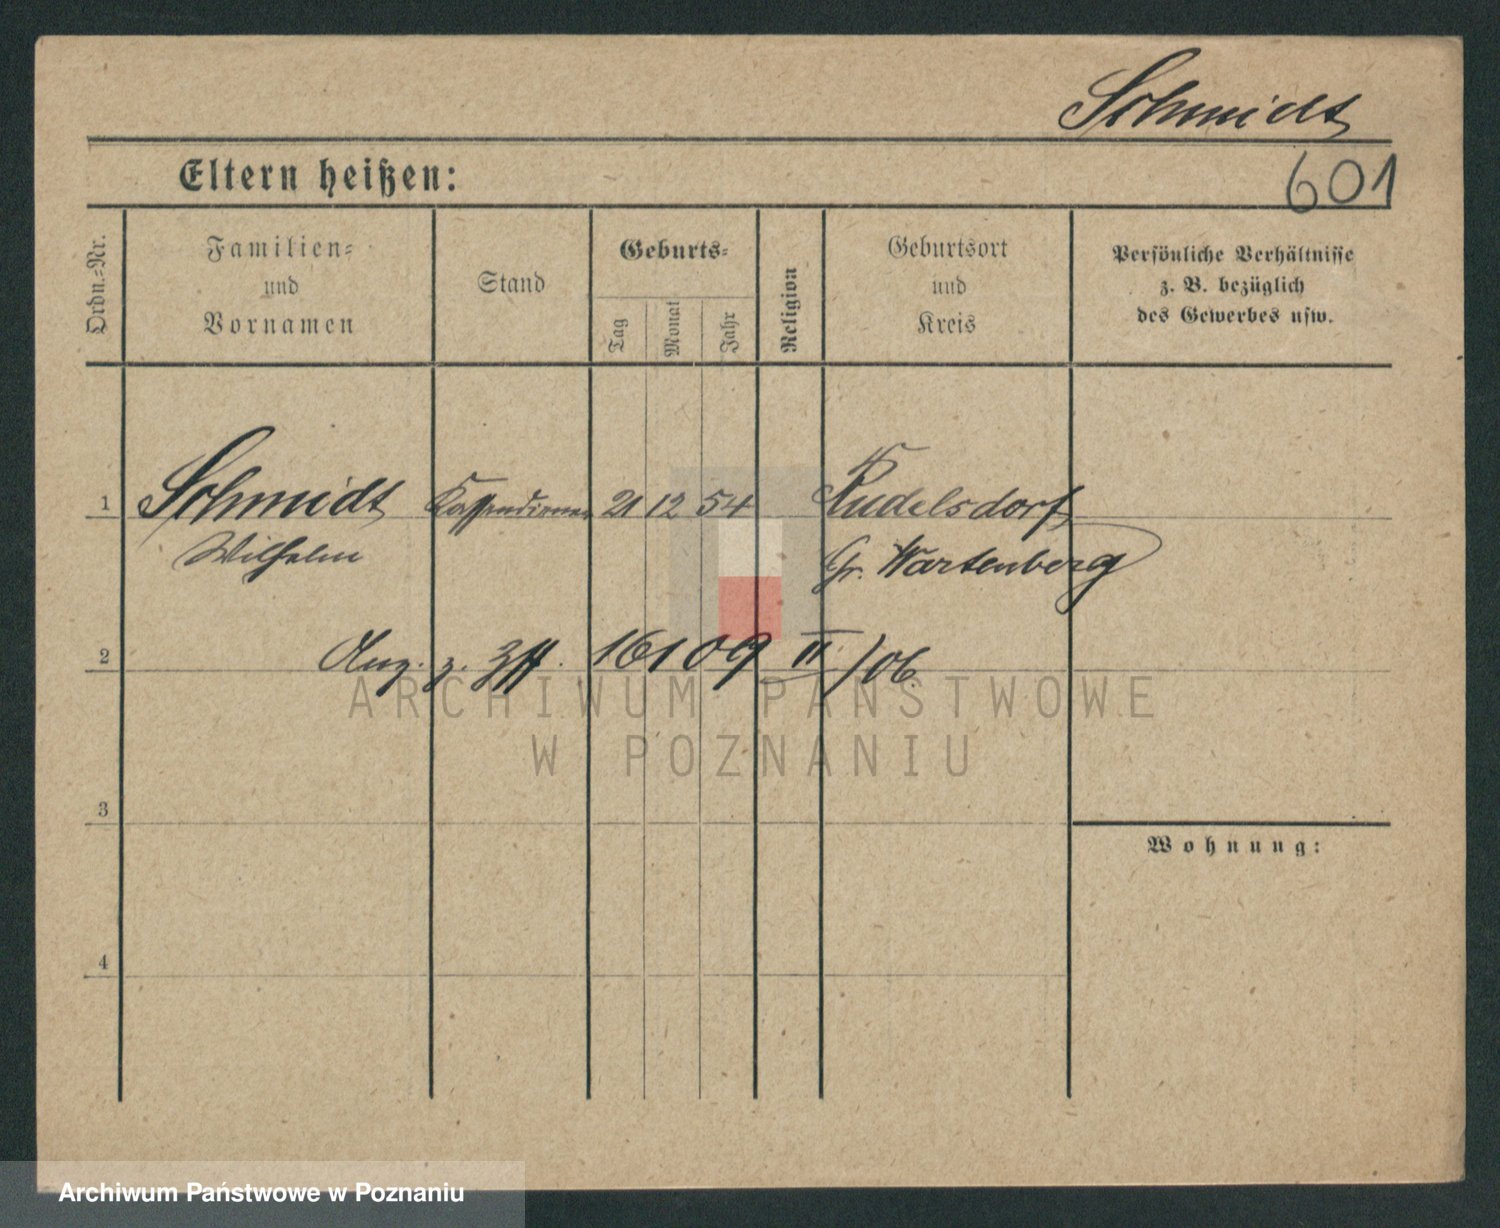 Schmidt
601
Eltern heißen:
Ordn.-Nr.
Familien-
und
Vornamen
Stand
Geburts-
Tag
Monat
Jahr
Religion
Geburtsort
und
Kreis
Persönliche Verhältnisse
z. B. bezüglich
des Gewerbes usw.
1 Schmidt Kassendiener 21 12 54 Rudelsdorf
Wilhelm Gr. Wartenberg
2 z. 16109 II /06
3
Wohnung:
4
ARCHIWUM PAŃSTWOWE
W POZNANIU
Archiwum Państwowe w Poznaniu